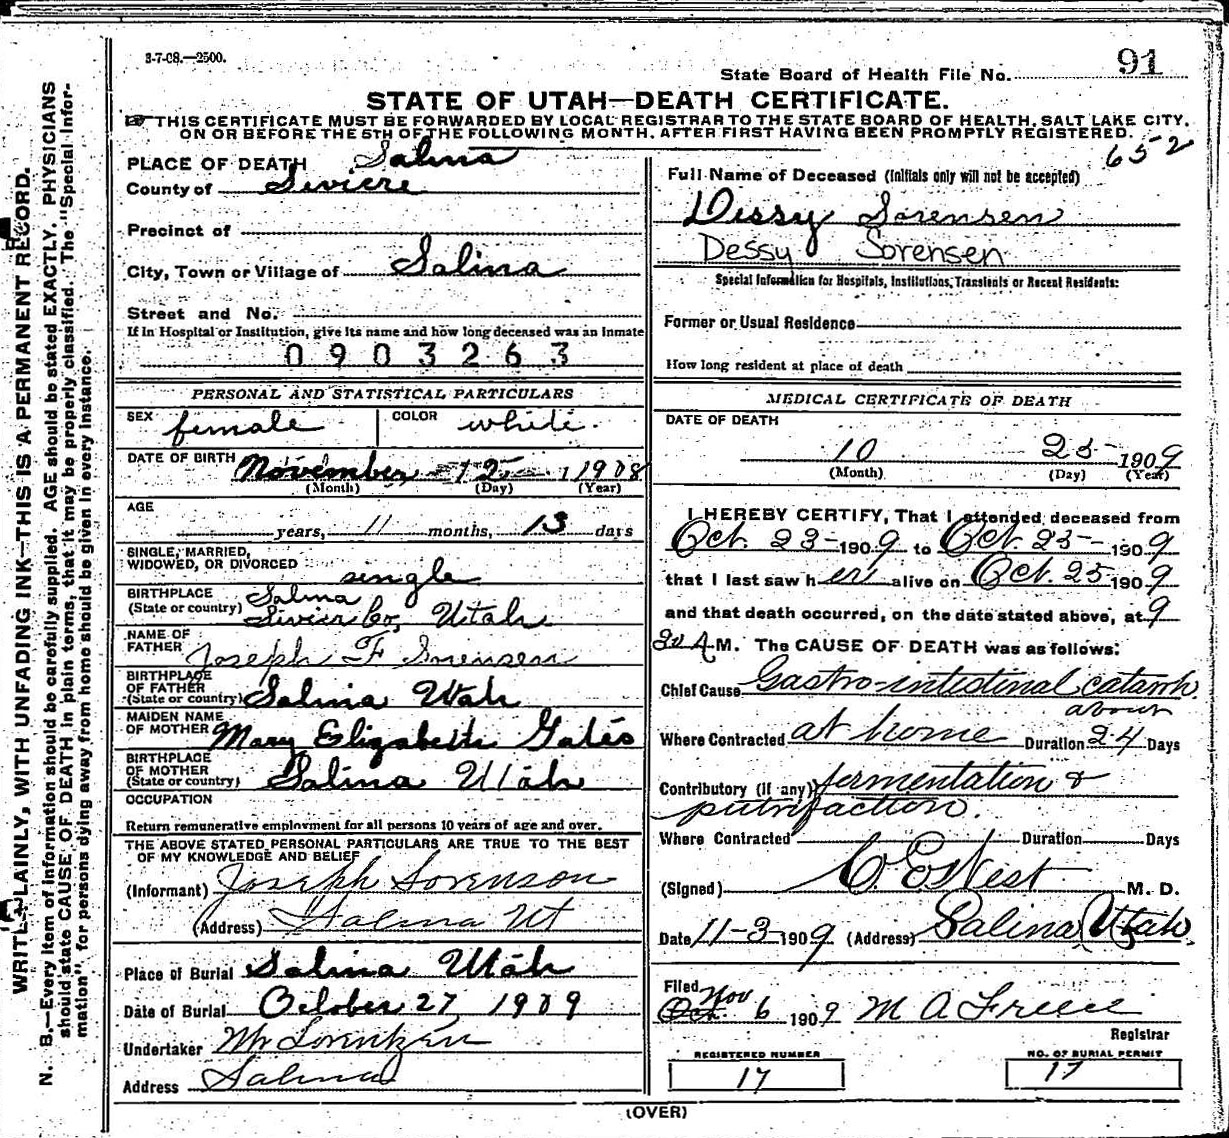 3-7-08.—2500.
91
State Board of Health File No.
STATE OF UTAH—DEATH CERTIFICATE.
THIS CERTIFICATE MUST BE FORWARDED BY LOCAL REGISTRAR TO THE STATE BOARD OF HEALTH, SALT LAKE CITY,
ON OR BEFORE THE 5TH OF THE FOLLOWING MONTH, AFTER FIRST HAVING BEEN PROMPTLY REGISTERED.
652
WRITE PLAINLY, WITH UNFADING INK—THIS IS A PERMANENT RECORD.
N. B.—Every item of information should be carefully supplied. AGE should be stated EXACTLY. PHYSICIANS
should state CAUSE OF DEATH in plain terms, that it may be properly classified. The "Special Infor-
mation" for persons dying away from home should be given in every instance.
PLACE OF DEATH Salina
County of Seviere
Precinct of
City, Town or Village of Salina
Street and No.
If in Hospital or Institution, give its name and how long deceased was an inmate
0903263
PERSONAL AND STATISTICAL PARTICULARS
SEX female COLOR white.
DATE OF BIRTH November 12 1908
(Month) (Day) (Year)
AGE
years, 11 months, 13 days
SINGLE, MARRIED,
WIDOWED, OR DIVORCED single
BIRTHPLACE Salina
(State or country) Sevier Co, Utah
NAME OF
FATHER Joseph F Sorensen
BIRTHPLACE
OF FATHER
(State or country) Salina Utah
MAIDEN NAME
OF MOTHER Mary Elizabeth Gates
BIRTHPLACE
OF MOTHER
(State or country) Salina Utah
OCCUPATION
Return remunerative employment for all persons 10 years of age and over.
THE ABOVE STATED PERSONAL PARTICULARS ARE TRUE TO THE BEST
OF MY KNOWLEDGE AND BELIEF
(Informant) Joseph Sorenson
(Address) Salina Ut
Place of Burial Salina Utah
Date of Burial October 27 1909
Undertaker Mr Lorentzen
Address Salina
Full Name of Deceased (Initials only will not be accepted)
Dessy Sorensen
Dessy Sorensen
Special Information for Hospitals, Institutions, Transients or Recent Residents:
Former or Usual Residence
How long resident at place of death
MEDICAL CERTIFICATE OF DEATH
DATE OF DEATH
10 25 1909
(Month) (Day) (Year)
I HEREBY CERTIFY, That I attended deceased from
Oct. 23- 1909 to Oct. 25- 1909
that I last saw her alive on Oct. 25 1909
and that death occurred, on the date stated above, at 9
30 A M. The CAUSE OF DEATH was as follows:
Chief Cause Gastro-intestinal catarrh
about
Where Contracted at home Duration 24 Days
Contributory (if any) fermentation &
putrifaction.
Where Contracted Duration Days
(Signed) C. E West M. D.
Date 11-3-1909 (Address) Salina Utah.
Filed Nov
Oct. 6 1909 M A Freece
Registrar
REGISTERED NUMBER NO. OF BURIAL PERMIT
17 17
(OVER)